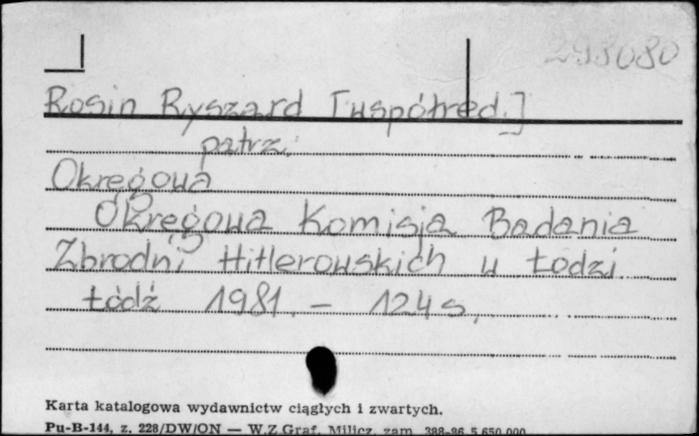 293080
Rosin Ryszard [współred.]
patrz:
Okręgowa
Okręgowa Komisja Badania
Zbrodni Hitlerowskich w Łodzi
Łódź 1981. – 124 s.
Karta katalogowa wydawnictw ciągłych i zwartych.
Pu-B-144, z. 228/DW/ON — W.Z.Graf. Milicz, zam. 388-86 5.650.000